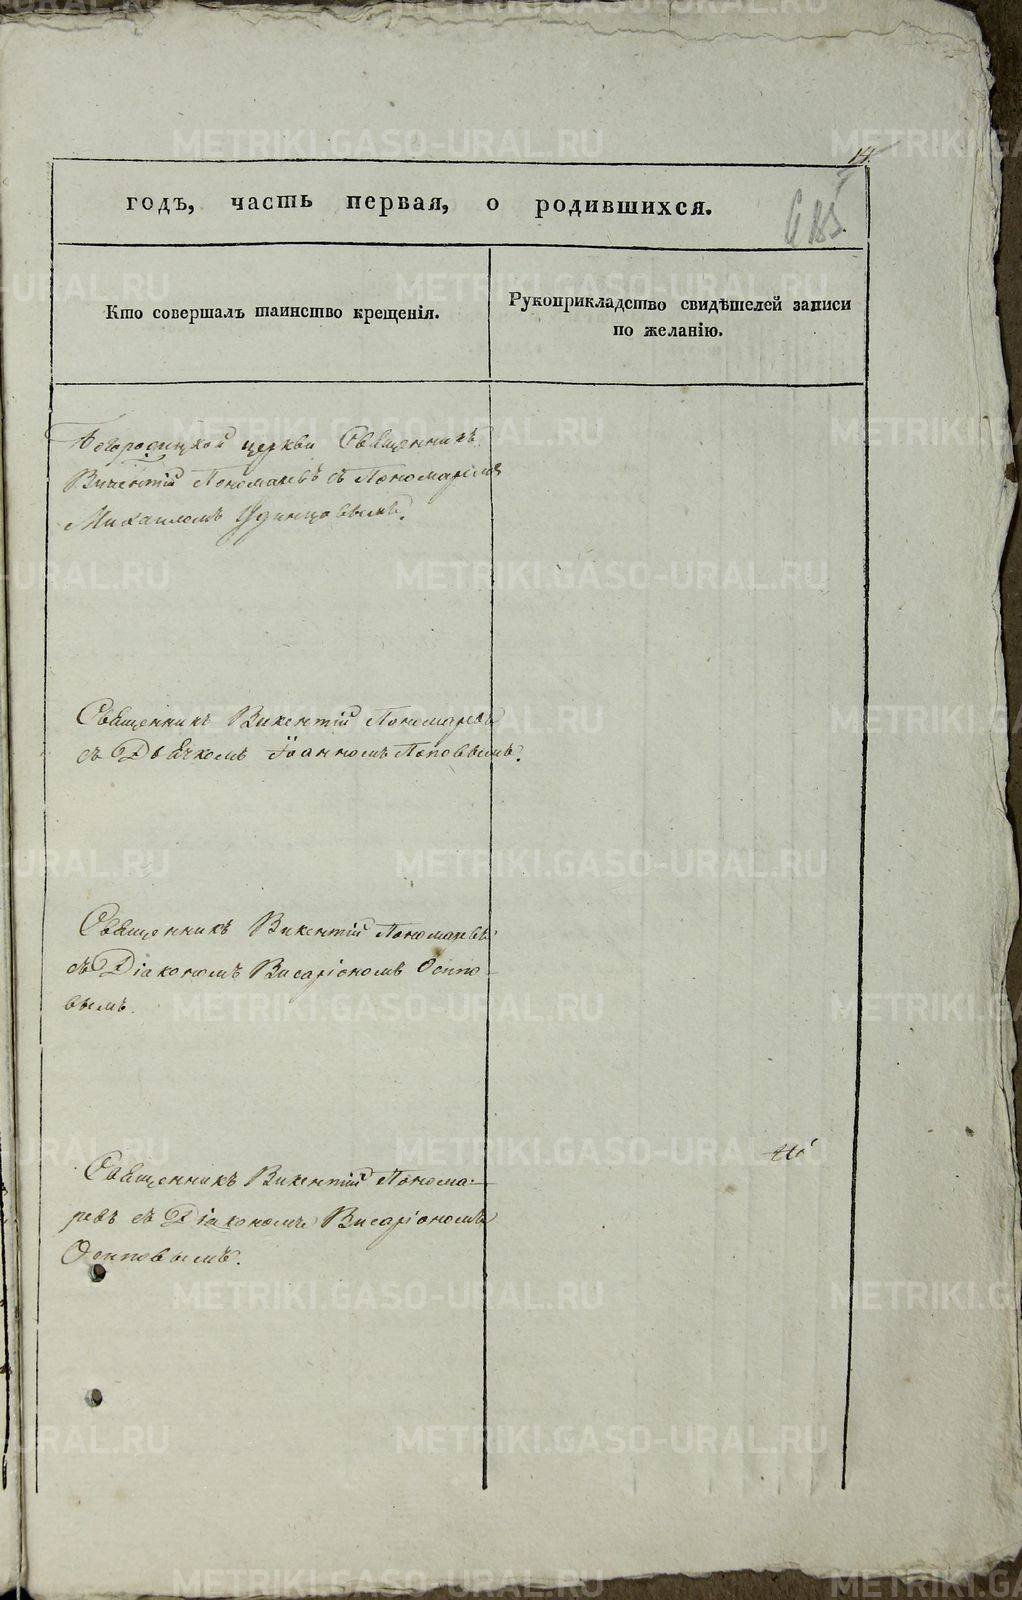 14.
годъ, часть первая, о родившихся.
Кто совершалъ таинство крещенія.
Рукоприкладство свидѣтелей записи
по желанію.
Богородицкой церкви Священникъ
Викентій Пономаревъ съ Пономаремъ
Михаиломъ Удинцовымъ.
Священникъ Викентій Пономаревъ
съ Дьячкомъ Іоанномъ Поповымъ.
Священникъ Викентій Пономаревъ
съ Діакономъ Висаріономъ Осипо-
вымъ.
Священникъ Викентій Понома-
ревъ съ Діакономъ Висаріономъ
Осиповымъ.
METRIKI.GASO-URAL.RU